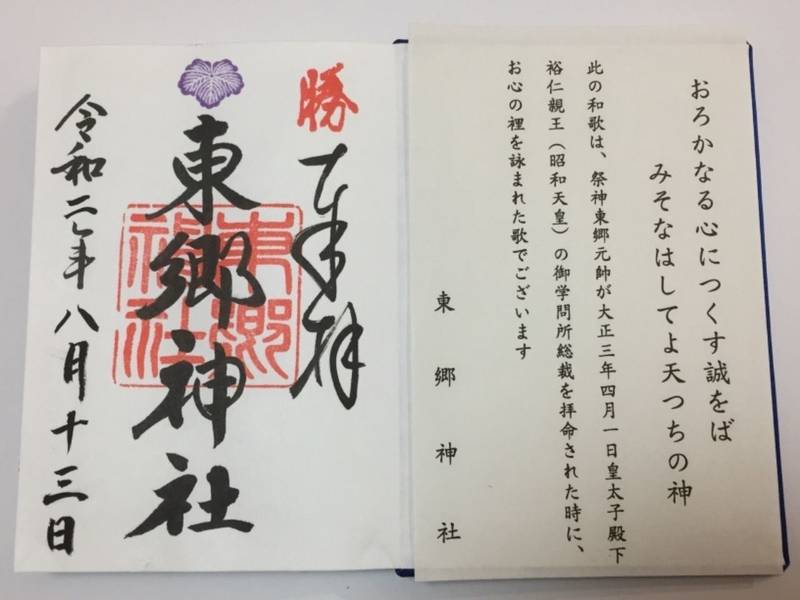 おろかなる心につくす誠をば
みそなはしてよ天つちの神
此の和歌は、祭神東郷元帥が大正三年四月一日皇太子殿下
裕仁親王（昭和天皇）の御学問所総裁を拝命された時に、
お心の裡を詠まれた歌でございます
東郷神社
勝
奉拝
東郷神社
東郷神社
令和二年八月十三日